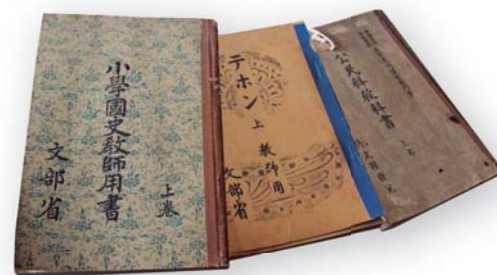 小學國史教師用書
上卷
文部省
テホン
上
教師用
文部省
公民科教科書
上卷